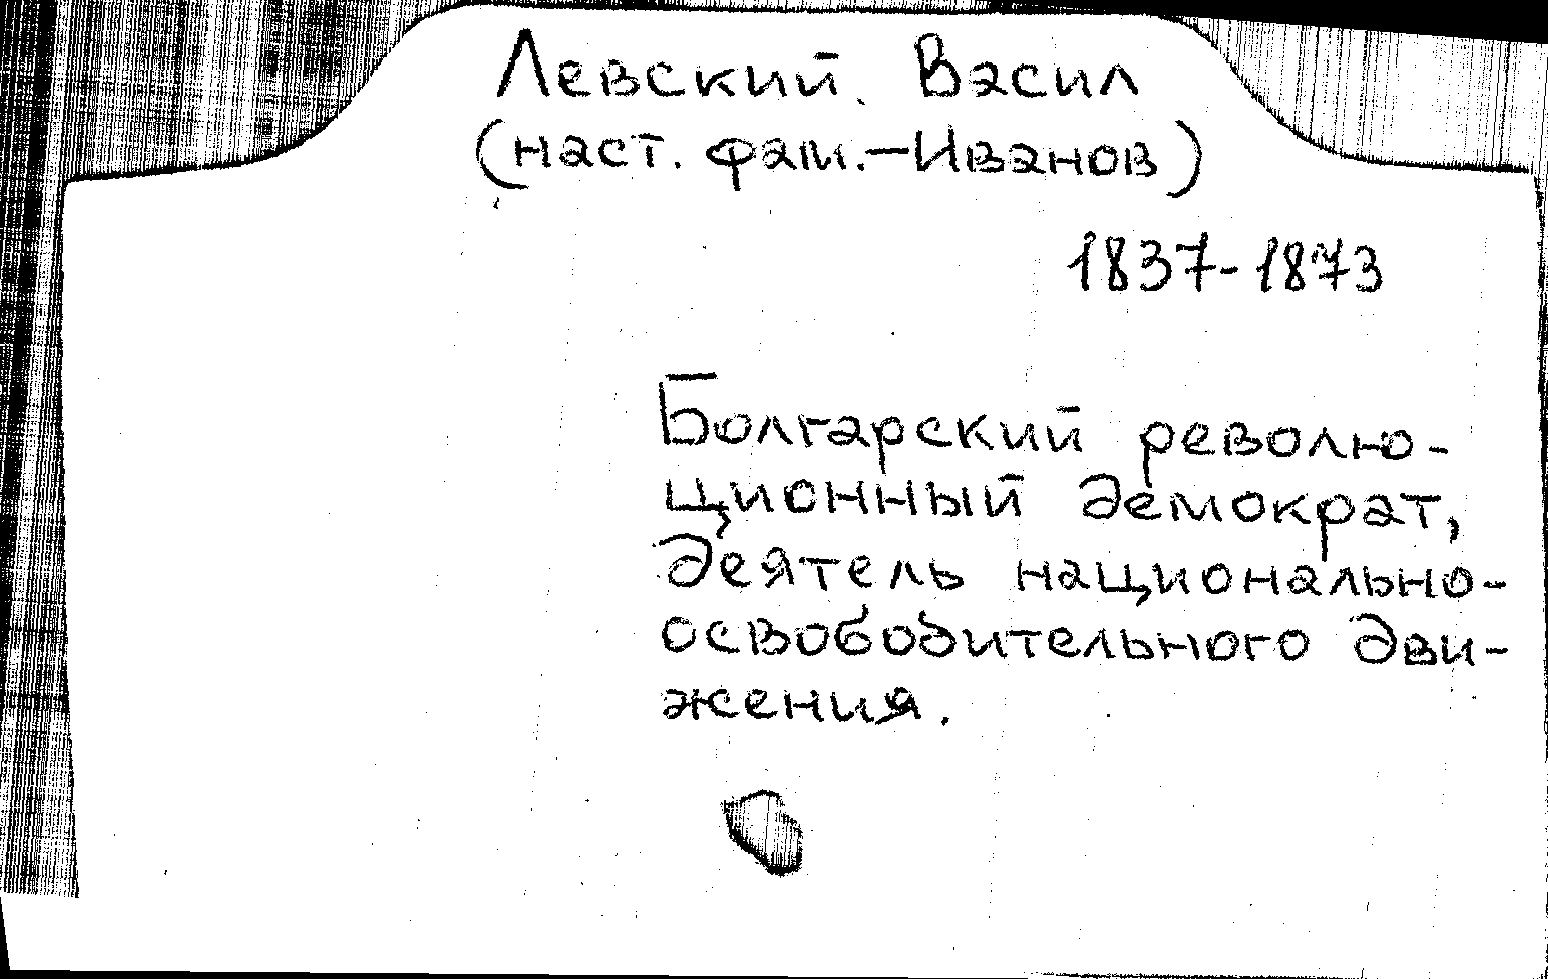 Левский, Васил
(наст. фам.-Иванов)
1837-1873
Болгарский револю-
ционный демократ,
деятель национально-
освободительного дви-
жения.